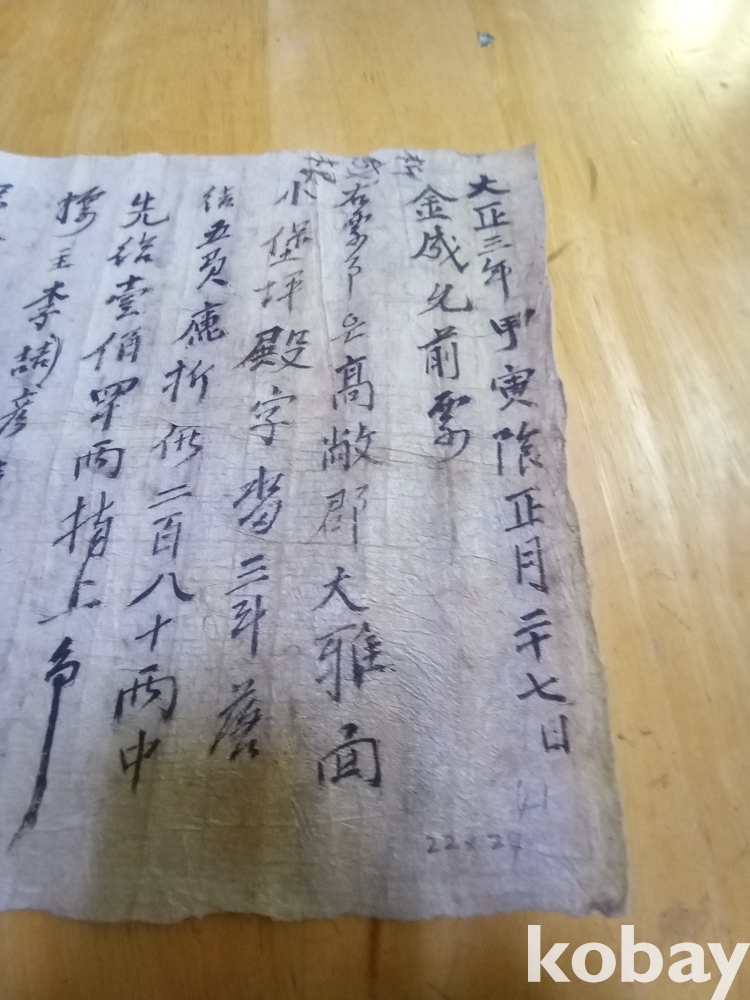 大正三年甲寅陰正月二十七日
金成允前票
右票事云高敞郡大雅面
小堡坪殿字畓三斗落
結五負庫折価二百八十両中
先給壹佰四両揹上事
標主李喆彦
22×24
kobay